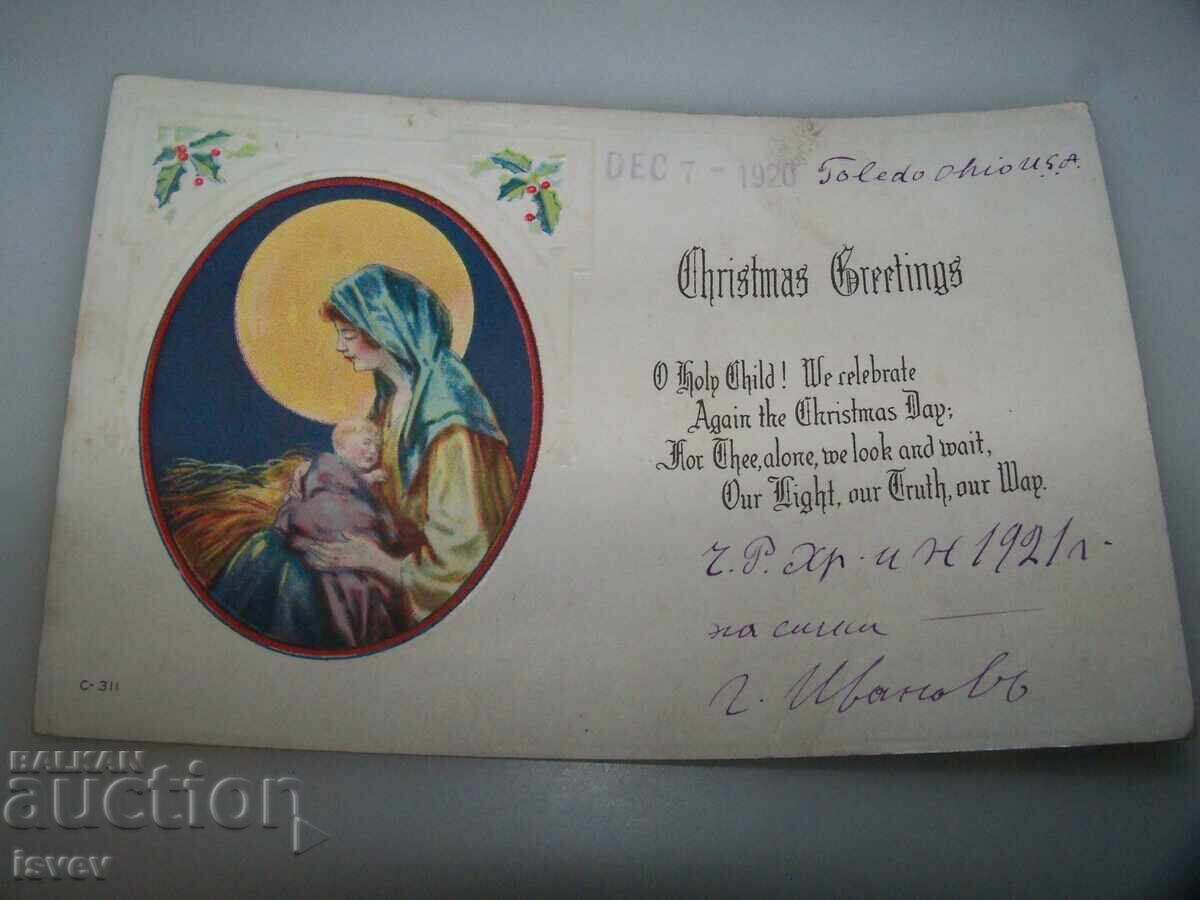 DEC 7 - 1920 Toledo Ohio U.S.A.
Christmas Greetings
O Holy Child! We celebrate
Again the Christmas Day;
For Thee, alone, we look and wait,
Our Light, our Truth, our Way.
Ч. Р. Хр. и Н 1921 г.
на сички
г. Ивановъ
C-311
BALKAN
auction
isvev